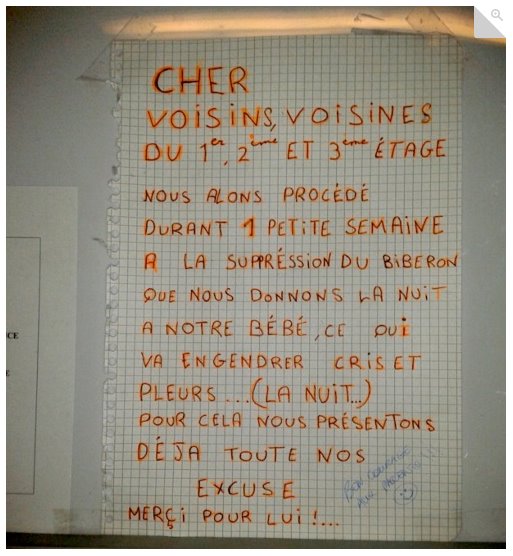 CHER
VOISINS, VOISINES
DU 1er, 2ème ET 3ème ÉTAGE
NOUS ALONS PROCÉDÉ
DURANT 1 PETITE SEMAINE
A LA SUPPRÉSSION DU BIBERON
QUE NOUS DONNONS LA NUIT
A NOTRE BÉBÉ, CE QUI
VA ENGENDRER CRIS ET
PLEURS ... (LA NUIT...)
POUR CELA NOUS PRÉSENTONS
DÉJA TOUTE NOS
EXCUSE
MERÇi POUR LUi !...
BON COURAGE
AUX PARENTS !!
CE
E